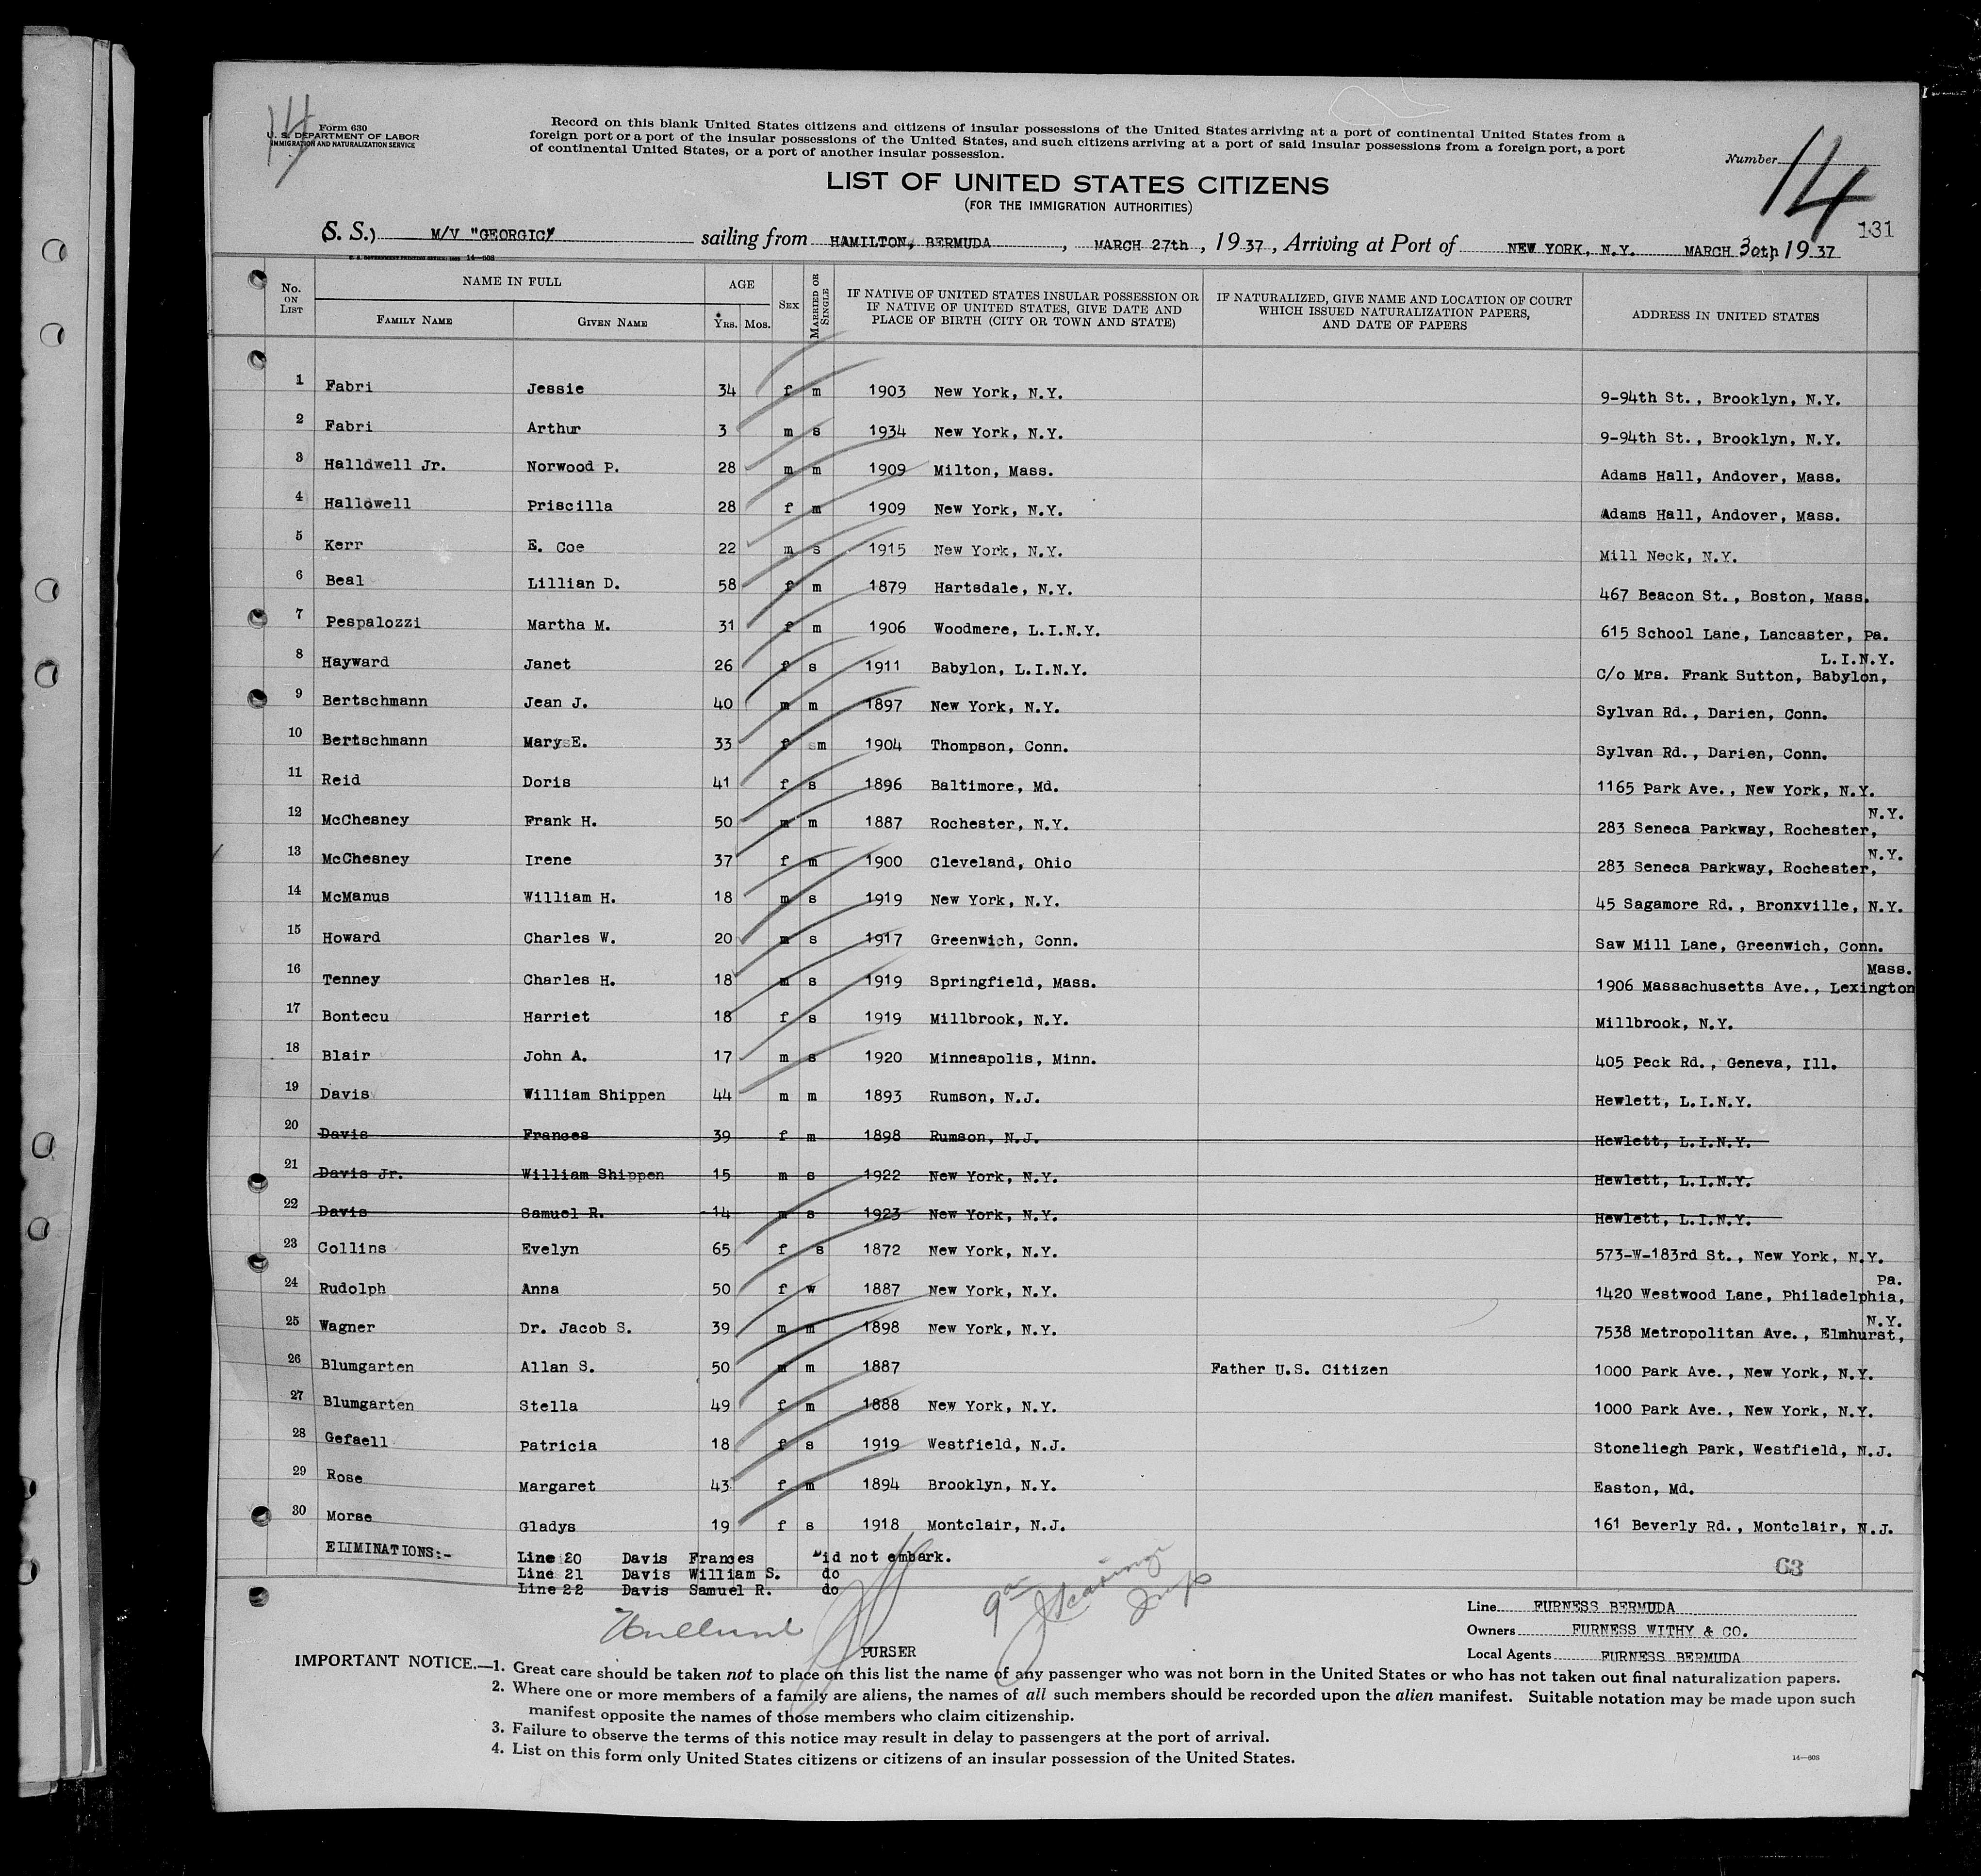 14
Form 630
U. S. DEPARTMENT OF LABOR
IMMIGRATION AND NATURALIZATION SERVICE
Record on this blank United States citizens and citizens of insular possessions of the United States arriving at a port of continental United States from a
foreign port or a port of the insular possessions of the United States, and such citizens arriving at a port of said insular possessions from a foreign port, a port
of continental United States, or a port of another insular possession.
Number 14
LIST OF UNITED STATES CITIZENS
(FOR THE IMMIGRATION AUTHORITIES)
131
(S. S.) M/V "GEORGIC" sailing from HAMILTON, BERMUDA, MARCH 27th, 1937, Arriving at Port of NEW YORK, N.Y. MARCH 30th 1937
No. ON LIST NAME IN FULL AGE SEX MARRIED OR SINGLE IF NATIVE OF UNITED STATES INSULAR POSSESSION OR IF NATIVE OF UNITED STATES, GIVE DATE AND PLACE OF BIRTH (CITY OR TOWN AND STATE) IF NATURALIZED, GIVE NAME AND LOCATION OF COURT WHICH ISSUED NATURALIZATION PAPERS, AND DATE OF PAPERS ADDRESS IN UNITED STATES
FAMILY NAME GIVEN NAME YRS. MOS.
1 Fabri Jessie 34 f m 1903 New York, N.Y. 9-94th St., Brooklyn, N.Y.
2 Fabri Arthur 3 m s 1934 New York, N.Y. 9-94th St., Brooklyn, N.Y.
3 Hallowell Jr. Norwood P. 28 m m 1909 Milton, Mass. Adams Hall, Andover, Mass.
4 Hallowell Priscilla 28 f m 1909 New York, N.Y. Adams Hall, Andover, Mass.
5 Kerr E. Coe 22 m s 1915 New York, N.Y. Mill Neck, N.Y.
6 Beal Lillian D. 58 f m 1879 Hartsdale, N.Y. 467 Beacon St., Boston, Mass.
7 Pespalozzi Martha M. 31 f m 1906 Woodmere, L.I.N.Y. 615 School Lane, Lancaster, Pa.
8 Hayward Janet 26 f s 1911 Babylon, L.I.N.Y. C/o Mrs. Frank Sutton, Babylon, L.I.N.Y.
9 Bertschmann Jean J. 40 m m 1897 New York, N.Y. Sylvan Rd., Darien, Conn.
10 Bertschmann Mary E. 33 f m 1904 Thompson, Conn. Sylvan Rd., Darien, Conn.
11 Reid Doris 41 f s 1896 Baltimore, Md. 1165 Park Ave., New York, N.Y.
12 McChesney Frank H. 50 m m 1887 Rochester, N.Y. 283 Seneca Parkway, Rochester, N.Y.
13 McChesney Irene 37 f m 1900 Cleveland, Ohio 283 Seneca Parkway, Rochester, N.Y.
14 McManus William H. 18 m s 1919 New York, N.Y. 45 Sagamore Rd., Bronxville, N.Y.
15 Howard Charles W. 20 m s 1917 Greenwich, Conn. Saw Mill Lane, Greenwich, Conn.
16 Tenney Charles H. 18 m s 1919 Springfield, Mass. 1906 Massachusetts Ave., Lexington Mass.
17 Bontecu Harriet 18 f s 1919 Millbrook, N.Y. Millbrook, N.Y.
18 Blair John A. 17 m s 1920 Minneapolis, Minn. 405 Peck Rd., Geneva, Ill.
19 Davis William Shippen 44 m m 1893 Rumson, N.J. Hewlett, L.I.N.Y.
20 Davis Frances 39 f m 1898 Rumson, N.J. Hewlett, L.I.N.Y.
21 Davis Jr. William Shippen 15 m s 1922 New York, N.Y. Hewlett, L.I.N.Y.
22 Davis Samuel R. 14 m s 1923 New York, N.Y. Hewlett, L.I.N.Y.
23 Collins Evelyn 65 f s 1872 New York, N.Y. 573-W-183rd St., New York, N.Y.
24 Rudolph Anna 50 f w 1887 New York, N.Y. 1420 Westwood Lane, Philadelphia, Pa.
25 Wagner Dr. Jacob S. 39 m m 1898 New York, N.Y. 7538 Metropolitan Ave., Elmhurst, N.Y.
26 Blumgarten Allan S. 50 m m 1887 Father U.S. Citizen 1000 Park Ave., New York, N.Y.
27 Blumgarten Stella 49 f m 1888 New York, N.Y. 1000 Park Ave., New York, N.Y.
28 Gefaell Patricia 18 f s 1919 Westfield, N.J. Stoneliegh Park, Westfield, N.J.
29 Rose Margaret 43 f m 1894 Brooklyn, N.Y. Easton, Md.
30 Morse Gladys 19 f s 1918 Montclair, N.J. 161 Beverly Rd., Montclair, N.J.
ELIMINATIONS:- Line 20 Davis Frances Did not embark.
Line 21 Davis William S. do
Line 22 Davis Samuel R. do
63
PURSER
Line FURNESS BERMUDA
Owners FURNESS WITHY & CO.
Local Agents FURNESS BERMUDA
IMPORTANT NOTICE.—1. Great care should be taken not to place on this list the name of any passenger who was not born in the United States or who has not taken out final naturalization papers.
2. Where one or more members of a family are aliens, the names of all such members should be recorded upon the alien manifest. Suitable notation may be made upon such
manifest opposite the names of those members who claim citizenship.
3. Failure to observe the terms of this notice may result in delay to passengers at the port of arrival.
4. List on this form only United States citizens or citizens of an insular possession of the United States.
14—608